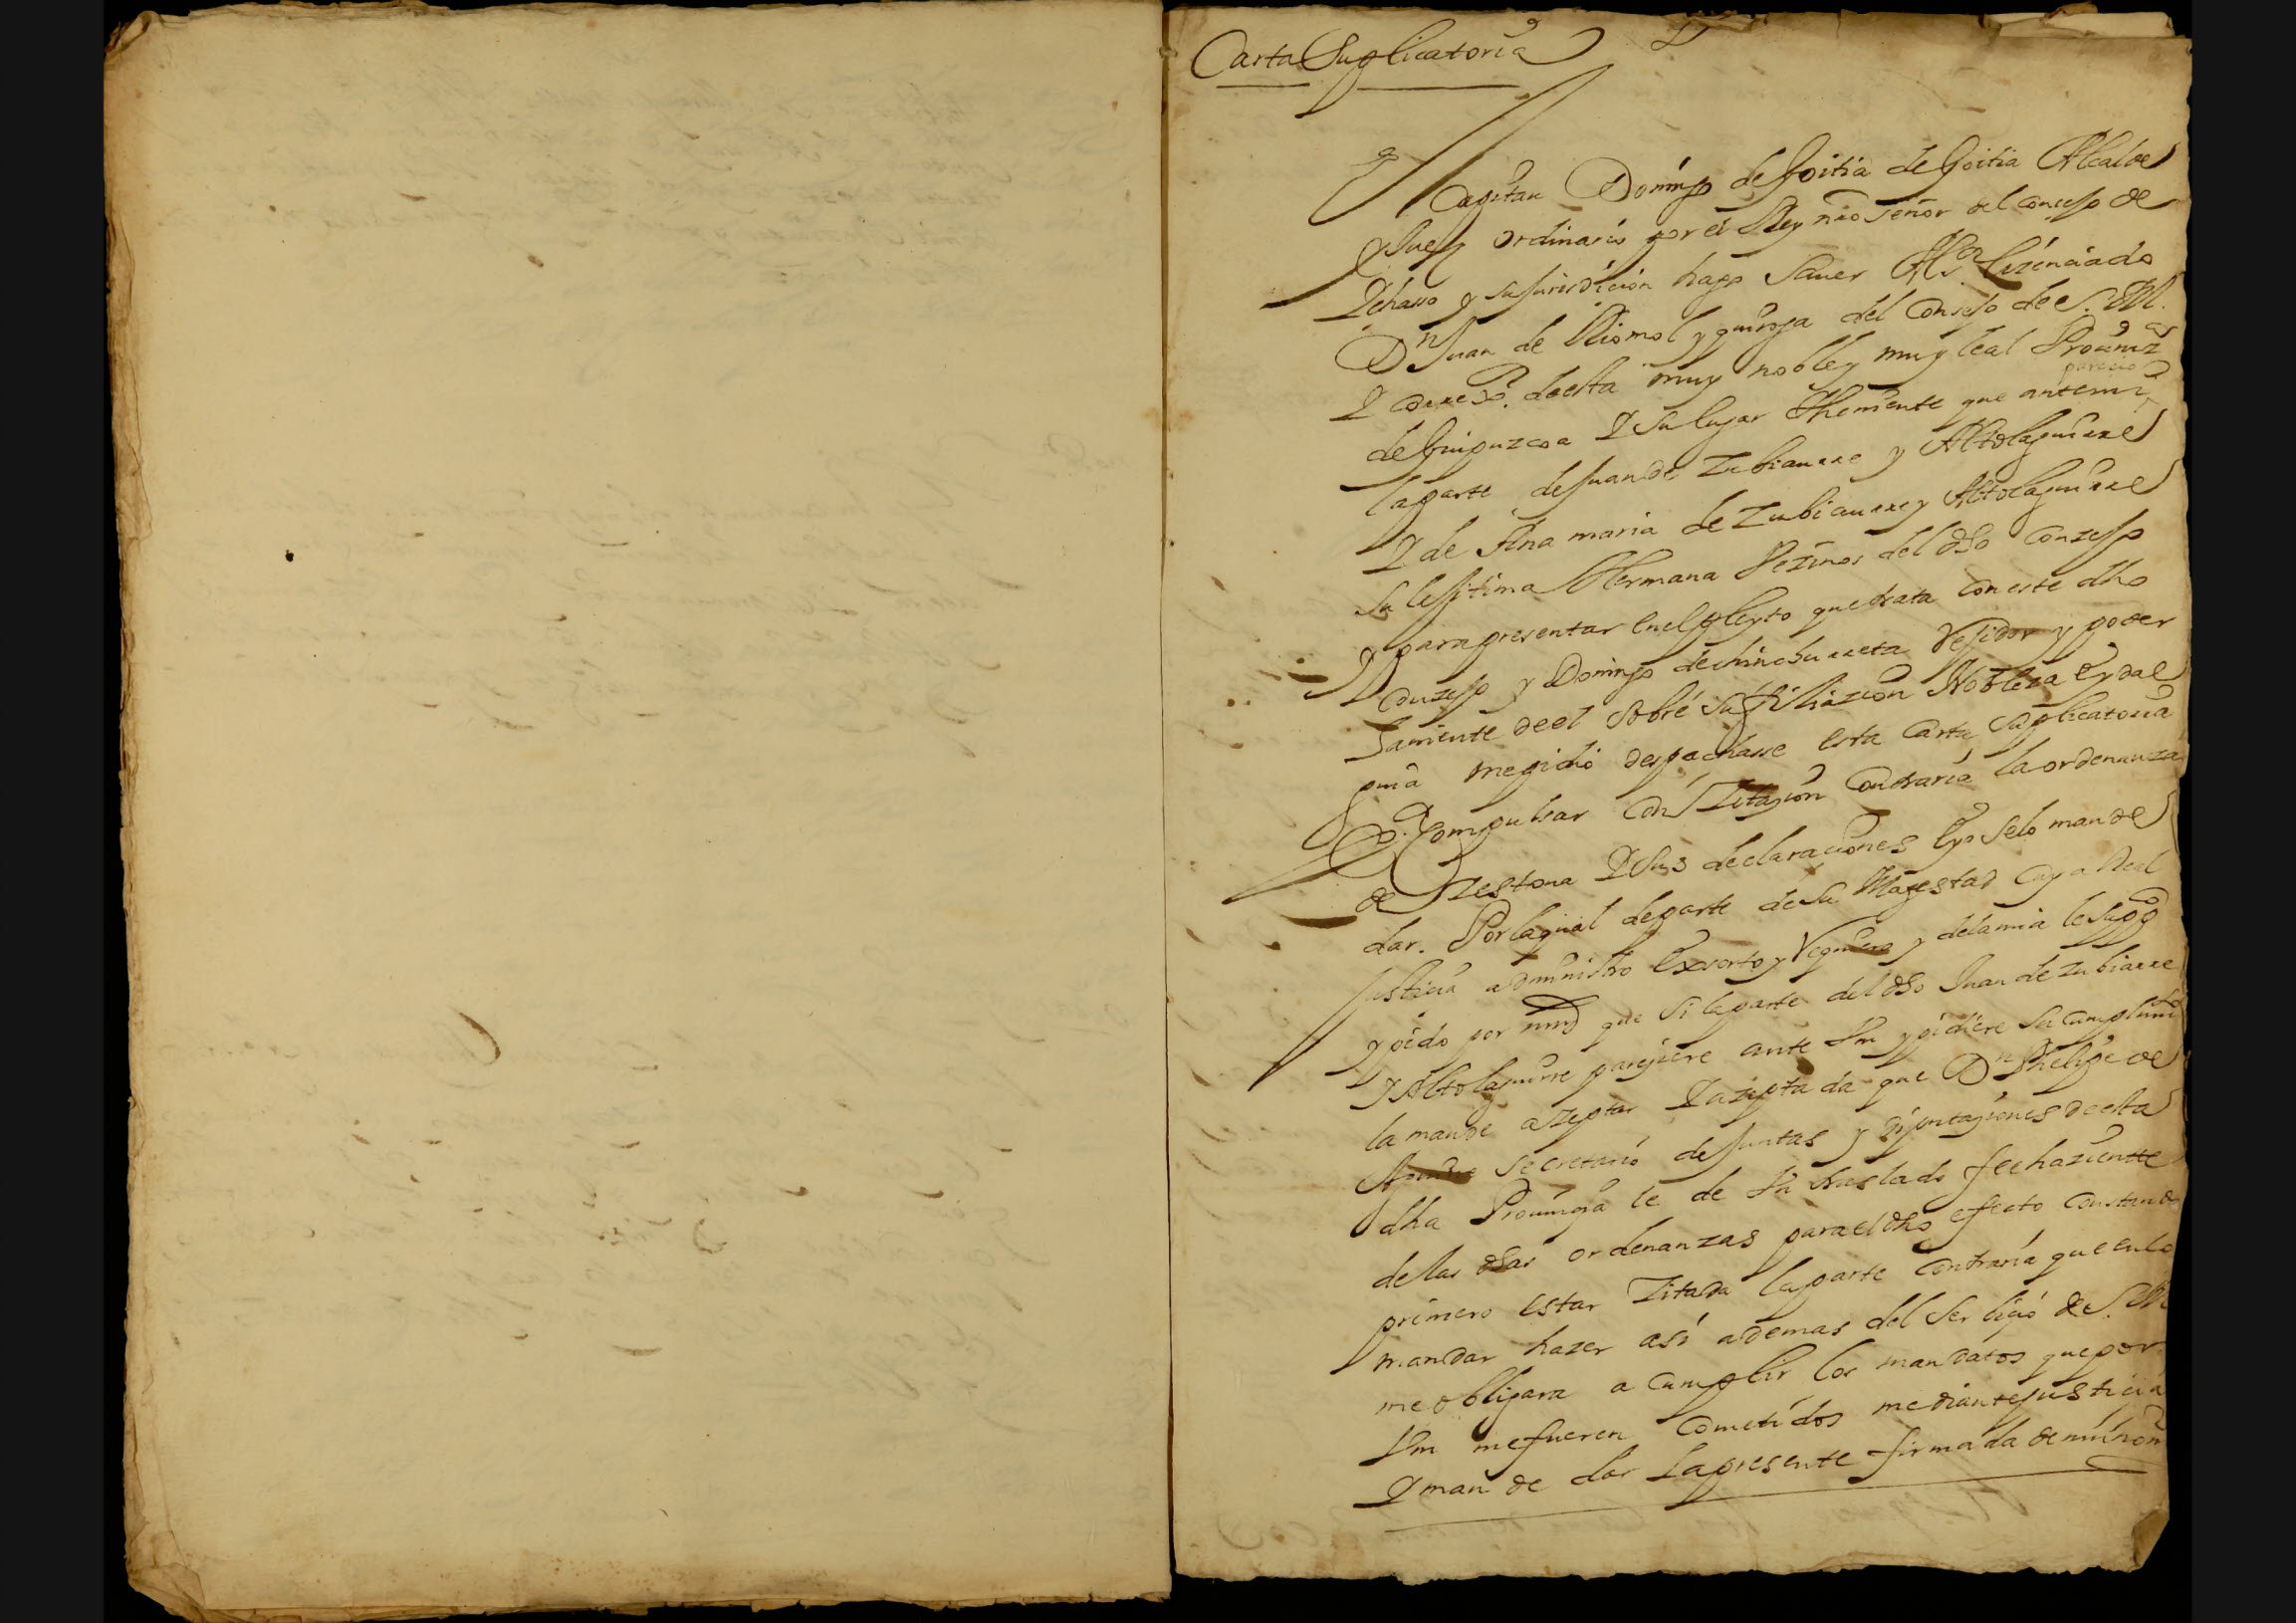 Carta Suplicatoria
Capitan Domingo de Goitia de Goitia Alcalde
y Juez ordinario por el Rey nro señor del conzejo de
y su jurisdicion hago Saver Al Sr Lizenciado
Dn Juan de Riomol y quiroga del Consejo de S. M.
Y correxor. de esta muy noble y muy leal Provinza
de Guipuzcoa Y su lugar Theniente que ante mi parecio
la parte de Juan de Zubiaurre y Altolaguirre
Y de Ana maria de Zubiaurre y Altolaguirre
su lejitima Hermana Vezinos del dho Conzejo
Y para presentar en el pleyto que trata con este dho
Conzejo y Domingo de chinchurreta Rejidor y poder
haviente de el sobre su filiazion Nobleza e ydal
guia me pidio despachasse esta Carta Suplicatoria
Pa. Compulsar con Zitazion Contraria la ordenanza
de Zestona Y sus declaraciones E yo se lo mande
dar. Por la qual de parte de su Magestad cuya Real
justicia administro Exsorto y Requiero y de la mia le supco
y pido por mrd que si la parte del dho Juan de Zubiarre
y Altolaguirre pareziere ante Vm y pidiere su cumplimto
la mande azeptar Y azeptada que Dn Phelipe de
Aguirre Secretario de Juntas y Diputaziones de esta
dha Provinzia le de Vn traslado feehaziente
de las dhas ordenanzas para el dho efecto Constando
primero estar Zitada la parte Contraria que en lo
mandar hazer asi ademas del Serbicio de S. M
me obligara a cumplir los mandatos que por
Vm me fueren Cometidos mediante justicia
Y man de dar La presente firmada de mi nom